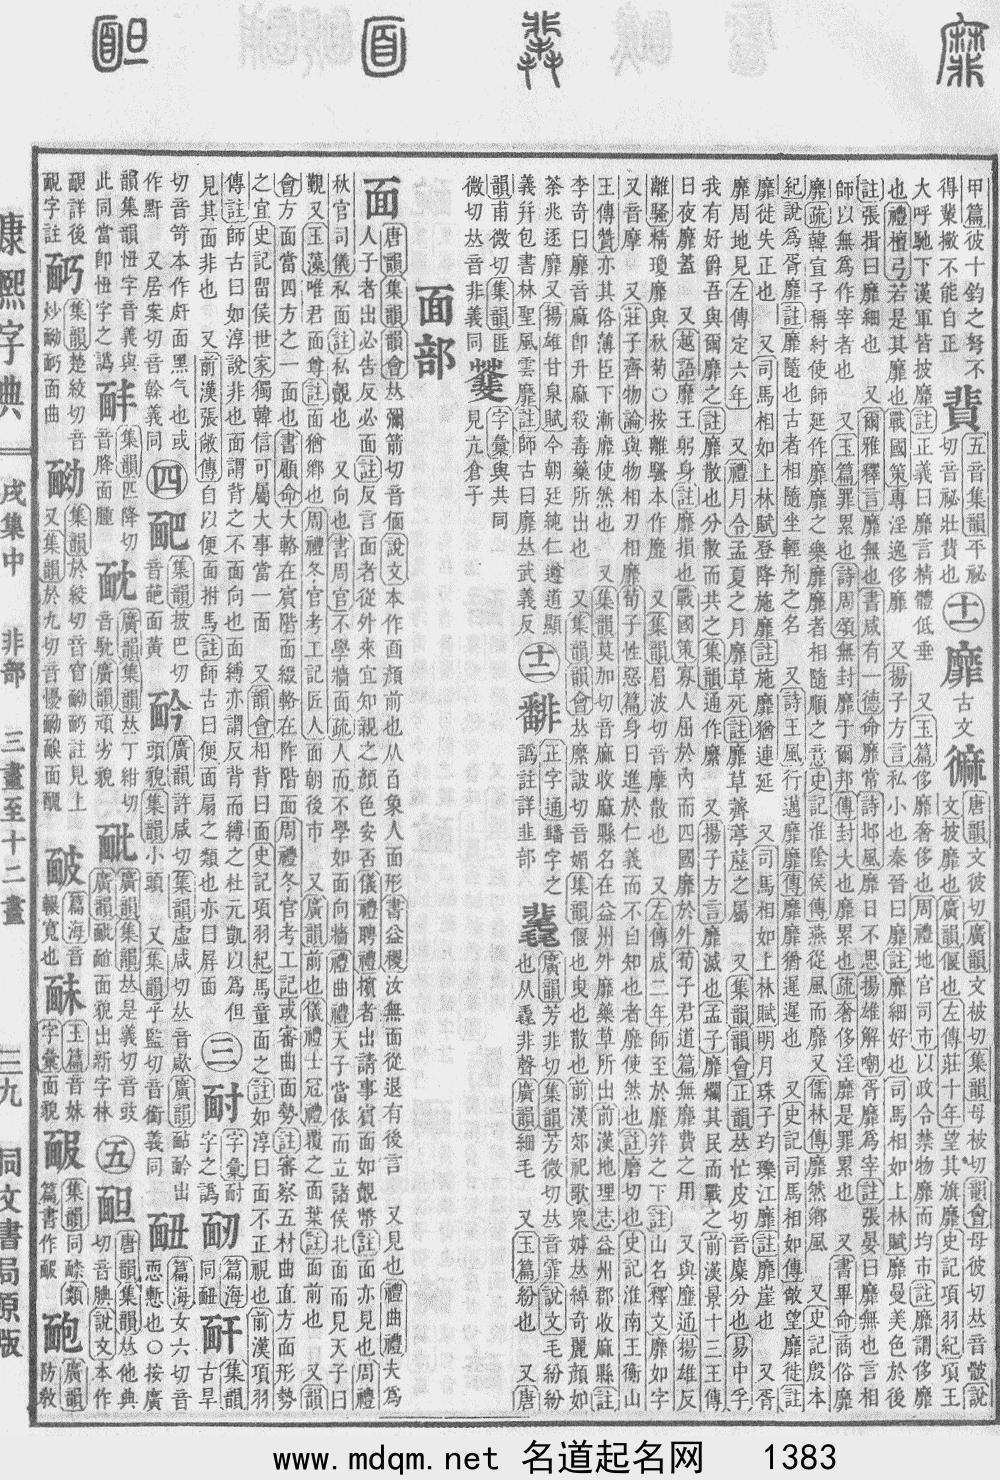 甲篇彼十鈞之弩不
得排檠不能自正
五音集韻平祕
切音祕壯䩁也
十一 靡 古文
唐韻文彼切廣韻文被切集韻母被切韻會母彼切𠀤音骳說
文披靡也廣韻偃也左傳莊十年望其旗靡史記項羽紀項王
大呼馳下漢軍皆披靡註正義曰靡言精體低垂 又玉篇侈靡奢侈也周禮地官司市以政令禁物靡而均市註靡謂侈靡
也禮檀弓若是其靡也戰國策專淫逸侈靡 又揚子方言私小也秦晉曰靡註靡細好也司馬相如上林賦靡曼美色於後
註張揖曰靡細也 又爾雅釋言靡無也書咸有一德命靡常詩邶風靡日不思揚雄解嘲胥靡為宰註張晏曰靡無也言相
師以無為作宰者也 又玉篇罪累也詩周頌無封靡于爾邦傳封大也靡累也疏奢侈淫靡是罪累也 又書畢命商俗靡
靡疏韓宣子稱紂使師延作靡靡之樂靡靡者相隨順之意史記淮陰侯傳燕從風而靡 又儒林傳靡然鄉風 又史記殷本
紀說為胥靡註靡隨也古者相隨坐輕刑之名 又詩王風行邁靡靡傳靡靡猶遲遲也 又史記司馬相如傳敞望靡徙註
靡徙失正也 又司馬相如上林賦登降施靡註施靡猶連延 又司馬相如上林賦明月珠子玓瓅江靡註靡崖也 又胥
靡周地見左傳定六年 又禮月令孟夏之月靡草死註靡草薺葶藶之屬 又集韻韻會正韻𠀤忙皮切音糜分也易中孚
我有好爵吾與爾靡之註靡散也分散而共之集韻通作縻 又揚子方言靡滅也孟子靡爛其民而戰之前漢景十三王傳
日夜靡蓋 又越語靡王躬身註靡損也戰國策寡人屈於內而四國靡於外荀子君道篇無靡費之用 又與䕷通揚雄反
離騷精瓊靡與秋菊〇按離騷本作䉾 又集韻眉波切音摩散也 又左傳成二年師至於靡笄之下註山名釋文靡如字
又音摩 又莊子齊物論與物相刃相靡荀子性惡篇身日進於仁義而不自知也者靡使然也註磨切也史記淮南王衡山
王傳贊亦其俗薄臣下漸靡使然也 又集韻莫加切音麻收靡縣名在益州外靡藥草所出前漢地理志益州郡收靡縣註
李奇曰靡音麻即升麻殺毒藥所出也 又集韻韻會𠀤縻詖切音媚集韻偃也曳也散也前漢郊祀歌眾嫭𠀤綽奇麗顏如
荼兆逐靡又揚雄甘泉賦今朝廷純仁遵道顯
義幷包書林聖風雲靡註師古曰靡𠀤武義反
十二
正字通蟠字之
譌註詳韭部
廣韻芳非切集韻芳微切𠀤音霏說文毛紛紛
也从毳非聲廣韻細毛 又玉篇紛也 又唐
韻甫微切集韻匪
微切𠀤音非義同
字彙與共同
見亢倉子
面部
面
唐韻集韻韻會𠀤彌箭切音偭說文本作𡇢顏前也从𦣻象人面形書益稷汝無面從退有後言 又見也禮曲禮夫為
人子者出必告反必面註反言面者從外來宜知親之顏色安否儀禮聘禮擯者出請事賓面如覿幣註面亦見也周禮
秋官司儀私面註私覿也 又向也書周官不學牆面疏人而不學如面向牆禮曲禮天子當依而立諸侯北面而見天子曰
覲又玉藻唯君面尊註面猶鄉也周禮冬官考工記匠人面朝後市 又廣韻前也儀禮士冠禮覆之面葉註面前也 又韻
會方面當四方之一面也書顧命大輅在賓階面綴輅在阼階面周禮冬官考工記或審曲面勢註審察五材曲直方面形勢
之宜史記留侯世家獨韓信可屬大事當一面 又韻會相背曰面史記項羽紀馬童面之註如淳曰面不正視也前漢項羽
傳註師古曰如淳說非也面謂背之不面向也面縛亦謂反背而縛之杜元凱以為但
見其面非也 又前漢張敞傳自以便面拊馬註師古曰便面扇之類也亦曰屏面
三
字彙耐
字之譌
篇海
同䩄
集韻
古旱
切音笴本作皯面黑气也或
作䵟 又居案切音幹義同
四
集韻披巴切
音葩面黃
廣韻許咸切集韻虛咸切𠀤音歁廣韻䩑䩂出
頭貌集韻小頭 又集韻乎監切音銜義同
篇海女六切音
恧慙也〇按廣
韻集韻忸字音義與
此同當即忸字之譌
集韻匹降切
音胮面腫
廣韻集韻𠀤丁紺切
音馾廣韻頑劣貌
廣韻集韻𠀤是義切音豉
廣韻䩃䩅面貌出新字林
五
唐韻集韻𠀤他典
切音腆說文本作
靦詳後
靦字註
集韻楚絞切音
炒䩆䩁面曲
集韻於絞切音窅䩆註見上
又集韻於九切音懮䩆䩋面醜
篇海音
𩎟寬也
玉篇音妹
字彙面貌
集韻同䤈類
篇書作䩈
廣韻
防敎
康熙字典
戌集中 非部 三畫至十二畫
三九 同文書局原版
www.mdqm.net 名道起名网 1383